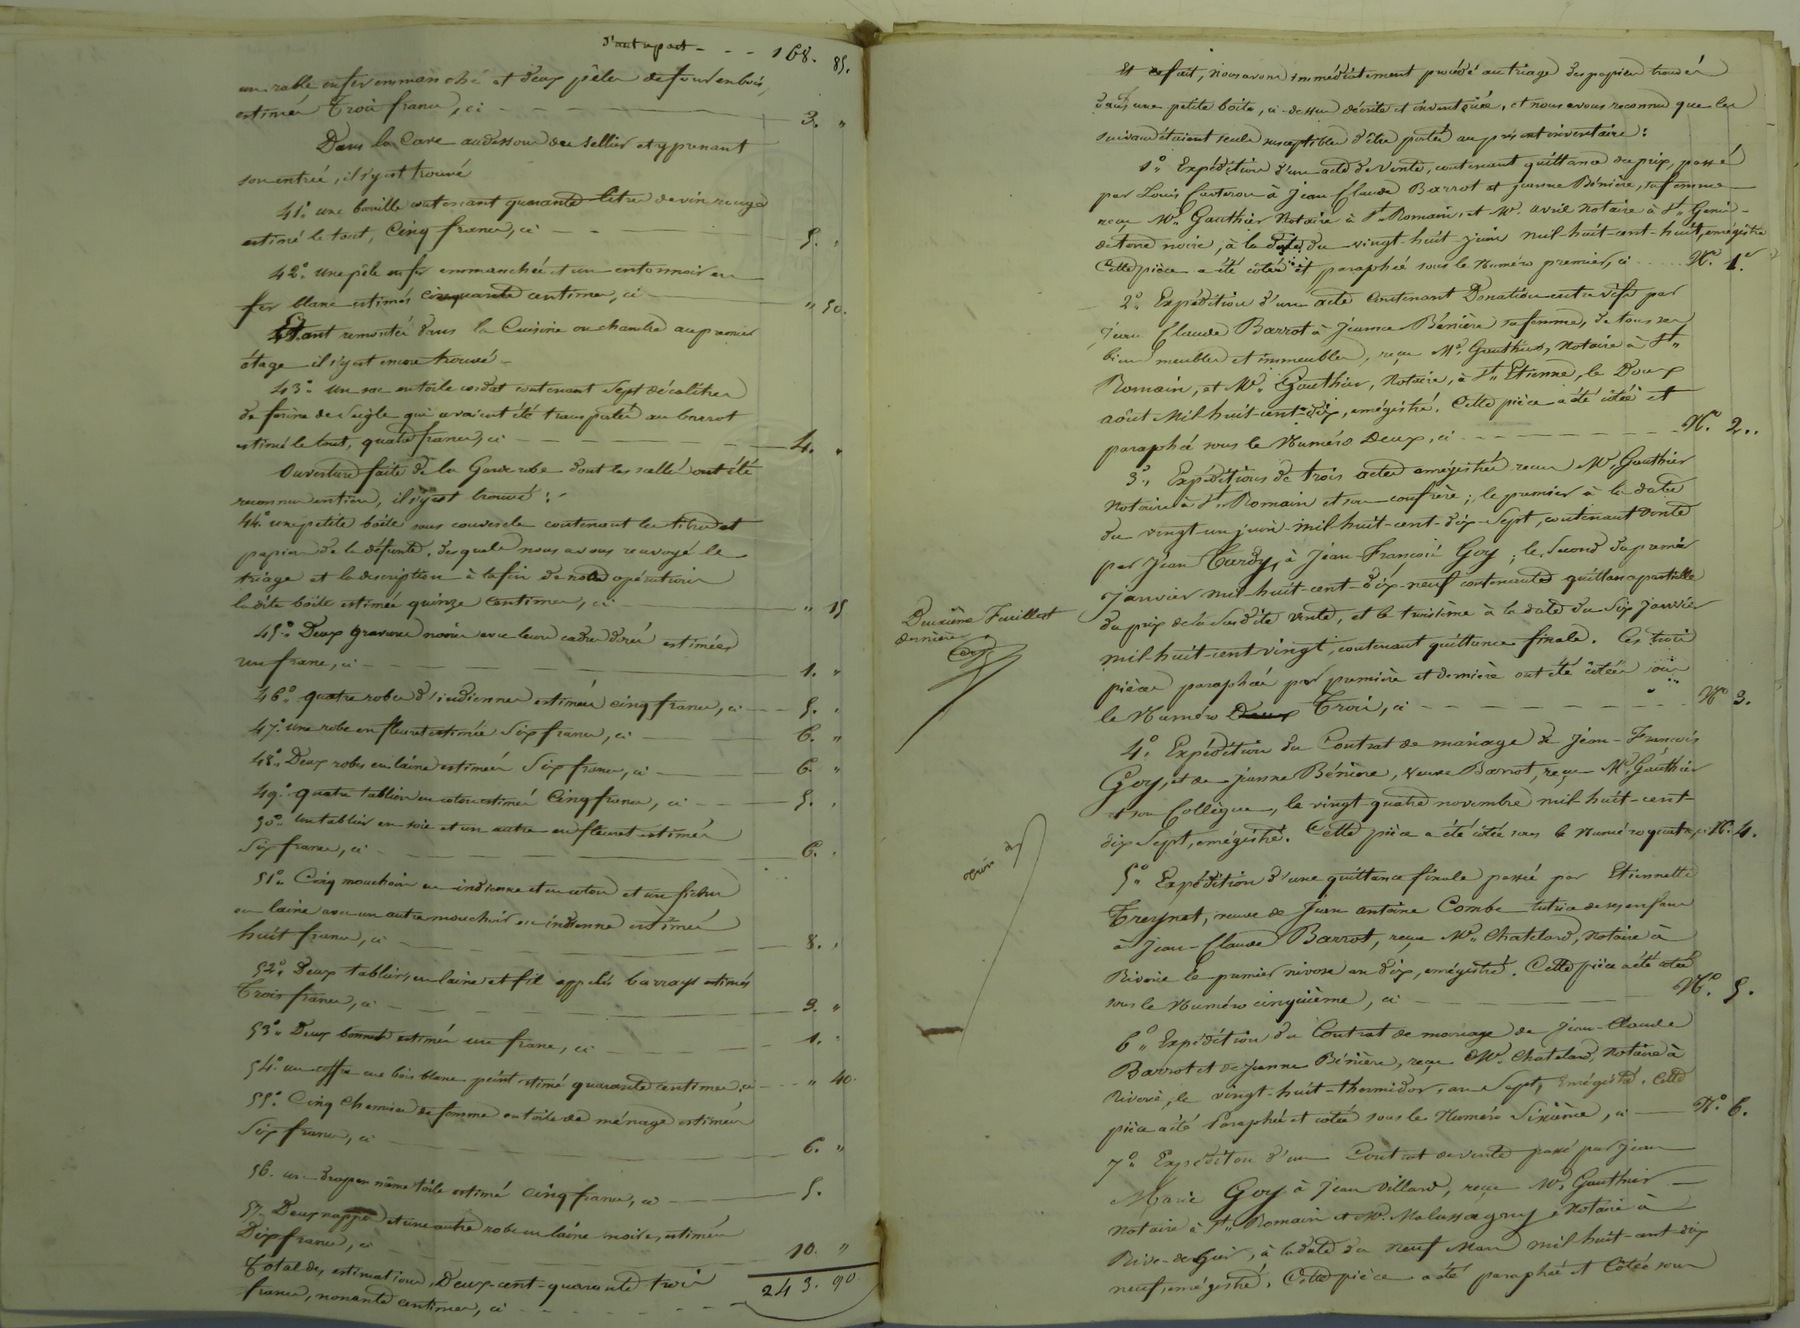 D'autre part - - - 168. 85.
un rable en fer emmanché et deux pèles de four en bois,
estimés Trois francs, ci 3. "
Dans la Cave au dessous du sellier et y prenant
son entrée, il s'y est trouvé
41°. une bouille contenant quarante litres de vin rouge
estimé le tout, Cinq francs, ci 5. "
42°. une pèle en fer emmanchée et un entonnoir en
fer blanc estimés cinquante centimes, ci " 50.
Etant remontés dans la Cuisine ou chambre au premier
étage il s'y est encore trouvé
43°. un sac en toile cordat contenant Sept décalitres
de farine de Seigle qui avaient été transportés au
estimé le tout, quatre francs, ci 4. "
Ouverture faite de la Garderobe dont les scellés ont été
reconnus entiers, il s'y est trouvé :
44°. une petite boîte sans couvercle contenant les titres et
papiers de la défunte, desquels nous avons renvoyé le
triage et la description à la fin de notre opération
la dite boîte estimée quinze centimes, ci " 15
45°. Deux gravures noires avec leurs cadres dorés estimées
un franc, ci 1. "
46°. quatre robes d'indienne estimées cinq francs, ci 5. "
47°. une robe en fleuret estimée Six francs, ci 6. "
48°. Deux robes en laine estimées Six francs, ci 6. "
49°. quatre tabliers en coton estimés Cinq francs, ci 5. "
50°. un tablier en soie et un autre en fleuret estimés
Six francs, ci 6. "
51°. Cinq mouchoirs en indienne et en coton et un fichu
en laine avec un autre mouchoir en indienne estimés
huit francs, ci 8. "
52°. Deux tabliers en laine et fil appelés estimés
Trois francs, ci 3. "
53°. Deux bonnets estimés un franc, ci 1. "
54°. un coffre en bois blanc peint estimé quarante centimes, ci " 40.
55°. Cinq Chemises de femme en toile de ménage estimées
Six francs, ci 6. "
56. un drap en même toile estimé cinq francs, ci 5.
57. Deux nappes et une autre robe en laine noire, estimées
Dix francs, ci 10. "
Total des estimations, Deux-cent-quarante trois
francs, nonante centimes, ci 243. 90
Et ce fait, nous avons immédiatement procédé au triage des papiers trouvés
dans une petite boîte, ci-dessus décrite et inventoriée, et nous avons reconnu que les
suivans étaient seuls susceptibles d'être portés au présent inventaire :
1°. Expédition d'un acte de Vente, contenant quittance du prix, passé
par Louis à Jean Claude Barrot et Jeanne Bénière, sa femme
reçu Me. Gauthier Notaire à St. Romain, et Me. avril Notaire à St. Genis-
de terre noire, à la date du vingt-huit juin mil-huit-cent-huit, enrégistré
Cette pièce a été côtée et paraphée sous le Numéro premier, ci N°. 1er
2°. Expédition d'un acte Contenant Donation entre vifs par
Jean Claude Barrot à Jeanne Bénière sa femme, de tous ses
biens meubles et immeubles, reçu Me. Gauthier, Notaire à St.
Romain, et Me. Gauthier, Notaire, à St. Etienne, le Douze
août Mil-huit-cent-dix, enrégistré. Cette pièce a été côtée et
paraphée sous le Numéro Deux, ci N°. 2..
3°. Expéditions de trois actes enrégistrés reçus Me. Gauthier
Notaire à St. Romain et son confrère ; le premier à la date
du vingt-un juin mil-huit-cent-dix-Sept, contenant Vente
par Jean Tardy, à Jean-François Goy ; le Second du premier
Janvier mil-huit-cent-dix-neuf contenant quittance partielle
du prix de la Susdite vente, et le troisième à la date du Six janvier
mil-huit-cent vingt, contenant quittance finale. Ces trois
pièces paraphées par première et dernière ont été côtées sous
le Numéro Deux Trois, ci N°. 3.
Deuxième Feuillet
dernière
4°. Expédition du Contrat de mariage de Jean-François
Goy, et de Jeanne Bénière, veuve Barrot, reçu Me. Gauthier
et son Collègue, le vingt-quatre novembre mil-huit-cent-
dix Sept, enrégistré. Cette pièce a été côtée sous le Numéro quatre, ci N°. 4.
5°. Expédition d'une quittance finale passée par Etiennette
Treynet, veuve de Jean antoine Combe tutrice de ses enfans
à Jean-Claude Barrot, reçue Me. Chatelard, Notaire à
Riverie le premier nivose an dix, enrégistré. Cette pièce a été côtée
sous le Numéro cinquième, ci N°. 5.
6°. Expédition du Contrat de mariage de Jean-Claude
Barrot et de Jeanne Bénière, reçu Me. Chatelard, Notaire à
Riverie, le vingt-huit-thermidor, an Sept, Enrégistré. Cette
pièce a été Paraphée et côtée sous le Numéro Sixième, ci N°. 6.
7°. Expédition d'un Contrat de vente passé par Jean
Marie Goy à Jean Villard, reçu Me. Gauthier
Notaire à St. Romain et Me. Notaire à
Rive-de-Gier, à la date du neuf Mars mil-huit-cent-dix
neuf, enrégistré. Cette pièce a été paraphée et Côtée sous